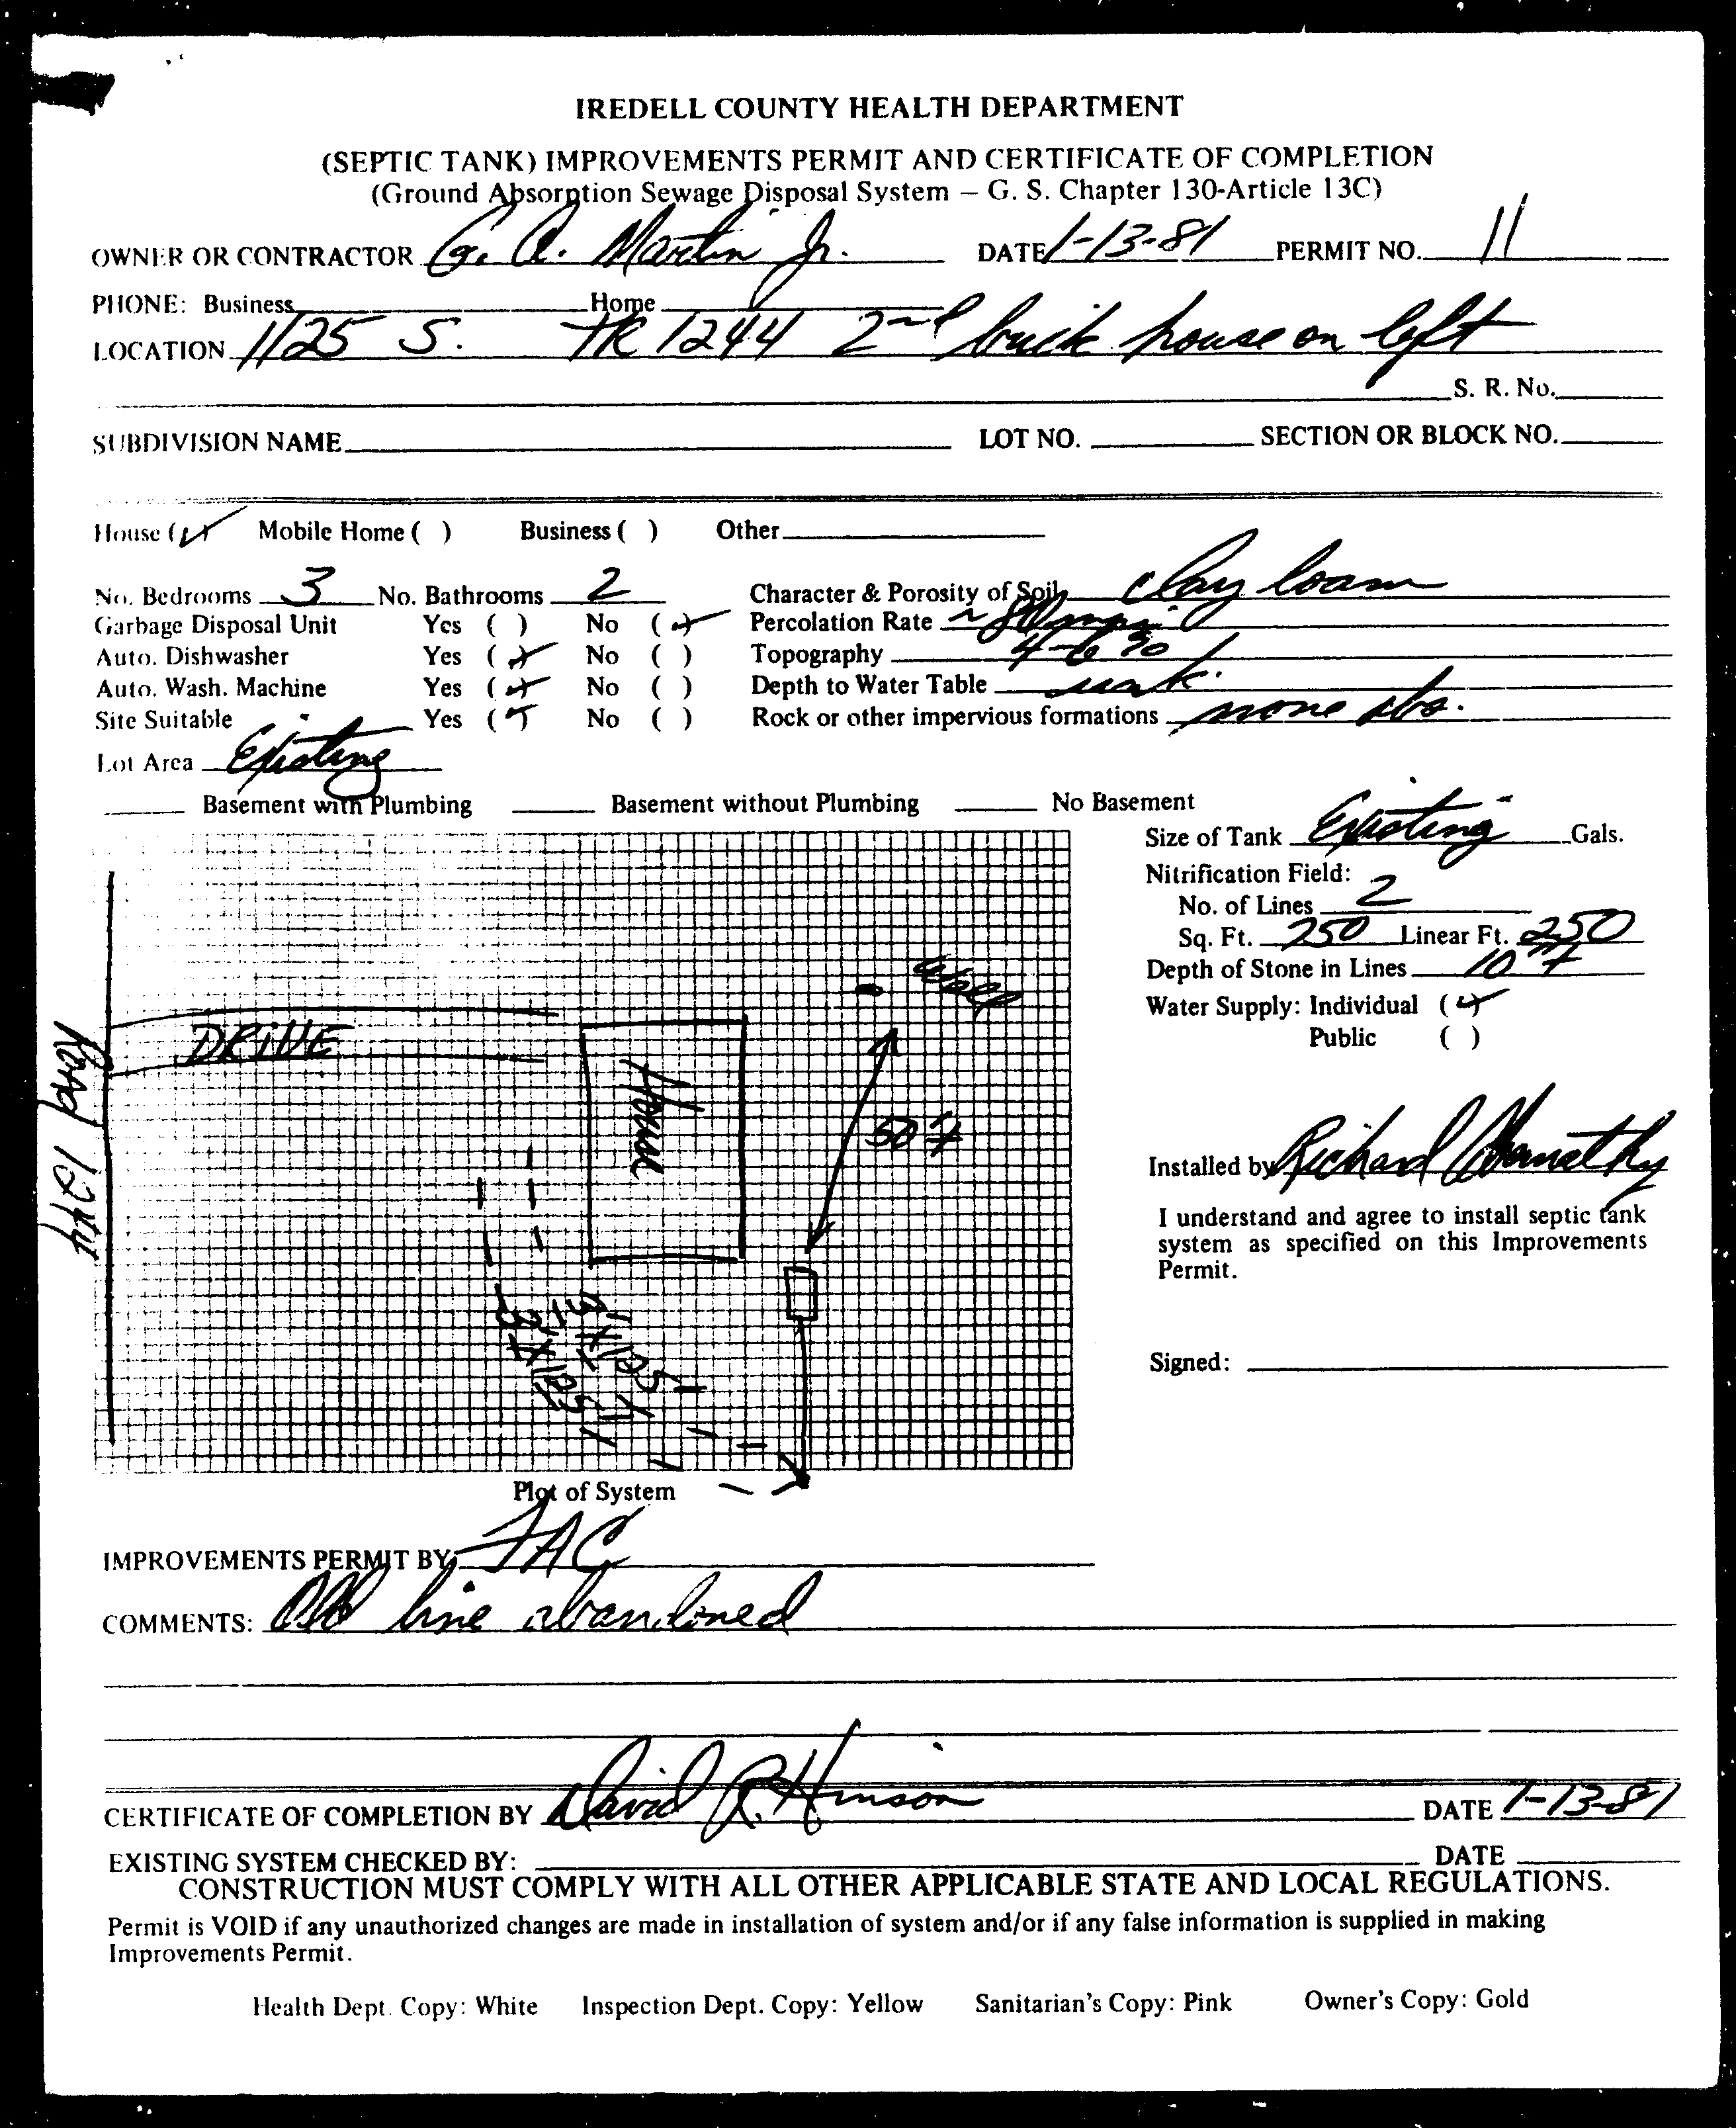 IREDELL COUNTY HEALTH DEPARTMENT
(SEPTIC TANK) IMPROVEMENTS PERMIT AND CERTIFICATE OF COMPLETION
(Ground Absorption Sewage Disposal System – G. S. Chapter 130-Article 13C)
OWNER OR CONTRACTOR G. A. Martin Jr. DATE 1-13-81 PERMIT NO. 11
PHONE: Business Home
LOCATION 1125 S. TR 1244 2nd brick house on left
S. R. No.
SUBDIVISION NAME LOT NO. SECTION OR BLOCK NO.
House (✓) Mobile Home ( ) Business ( ) Other
No. Bedrooms 3 No. Bathrooms 2 Character & Porosity of Soil clay loam
Garbage Disposal Unit Yes ( ) No (✓) Percolation Rate ~ 80 mpi
Auto. Dishwasher Yes (✓) No ( ) Topography 4-6 %
Auto. Wash. Machine Yes (✓) No ( ) Depth to Water Table unk.
Site Suitable Yes (✓) No ( ) Rock or other impervious formations none obs.
Lot Area Existing
Basement with Plumbing Basement without Plumbing No Basement
Size of Tank Existing Gals.
Nitrification Field:
No. of Lines 2
Sq. Ft. 750 Linear Ft. 250
Depth of Stone in Lines 10"+
Water Supply: Individual (✓)
Public ( )
Well
DRIVE
House
50'+
Road 1244
3'x125'
3'x125'
Installed by Richard Abernathy
I understand and agree to install septic tank
system as specified on this Improvements
Permit.
Signed:
Plot of System
IMPROVEMENTS PERMIT BY: JAC
COMMENTS: Old line abandoned
CERTIFICATE OF COMPLETION BY David R. Hinson DATE 1-13-81
EXISTING SYSTEM CHECKED BY: DATE
CONSTRUCTION MUST COMPLY WITH ALL OTHER APPLICABLE STATE AND LOCAL REGULATIONS.
Permit is VOID if any unauthorized changes are made in installation of system and/or if any false information is supplied in making
Improvements Permit.
Health Dept. Copy: White Inspection Dept. Copy: Yellow Sanitarian's Copy: Pink Owner's Copy: Gold